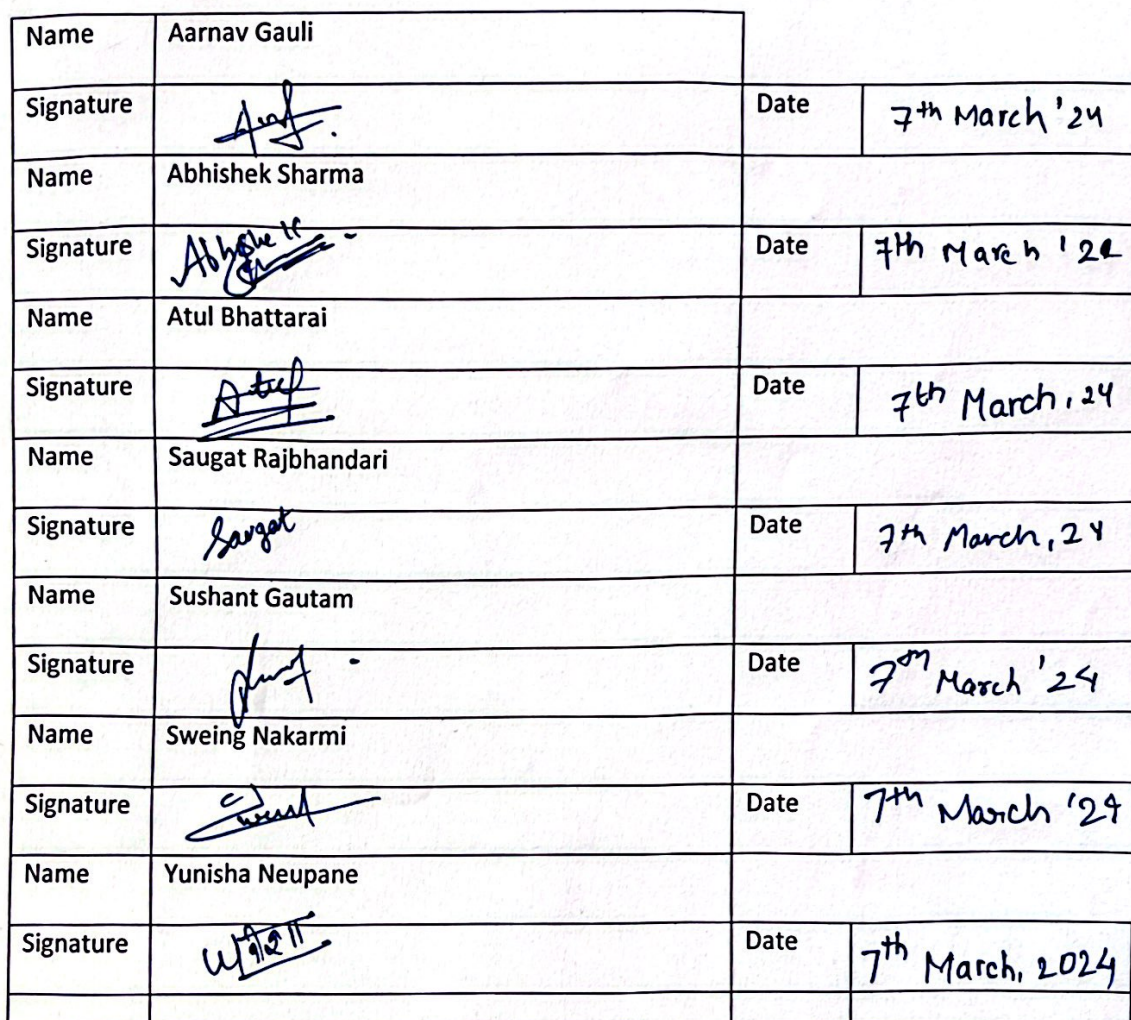 Name Aarnav Gauli
Signature Date 7th March '24
Name Abhishek Sharma
Signature Abhishek Date 7th March '24
Name Atul Bhattarai
Signature Atul Date 7th March, 24
Name Saugat Rajbhandari
Signature Saugat Date 7th March, 24
Name Sushant Gautam
Signature Date 7th March '24
Name Sweing Nakarmi
Signature Date 7th March '24
Name Yunisha Neupane
Signature Date 7th March, 2024